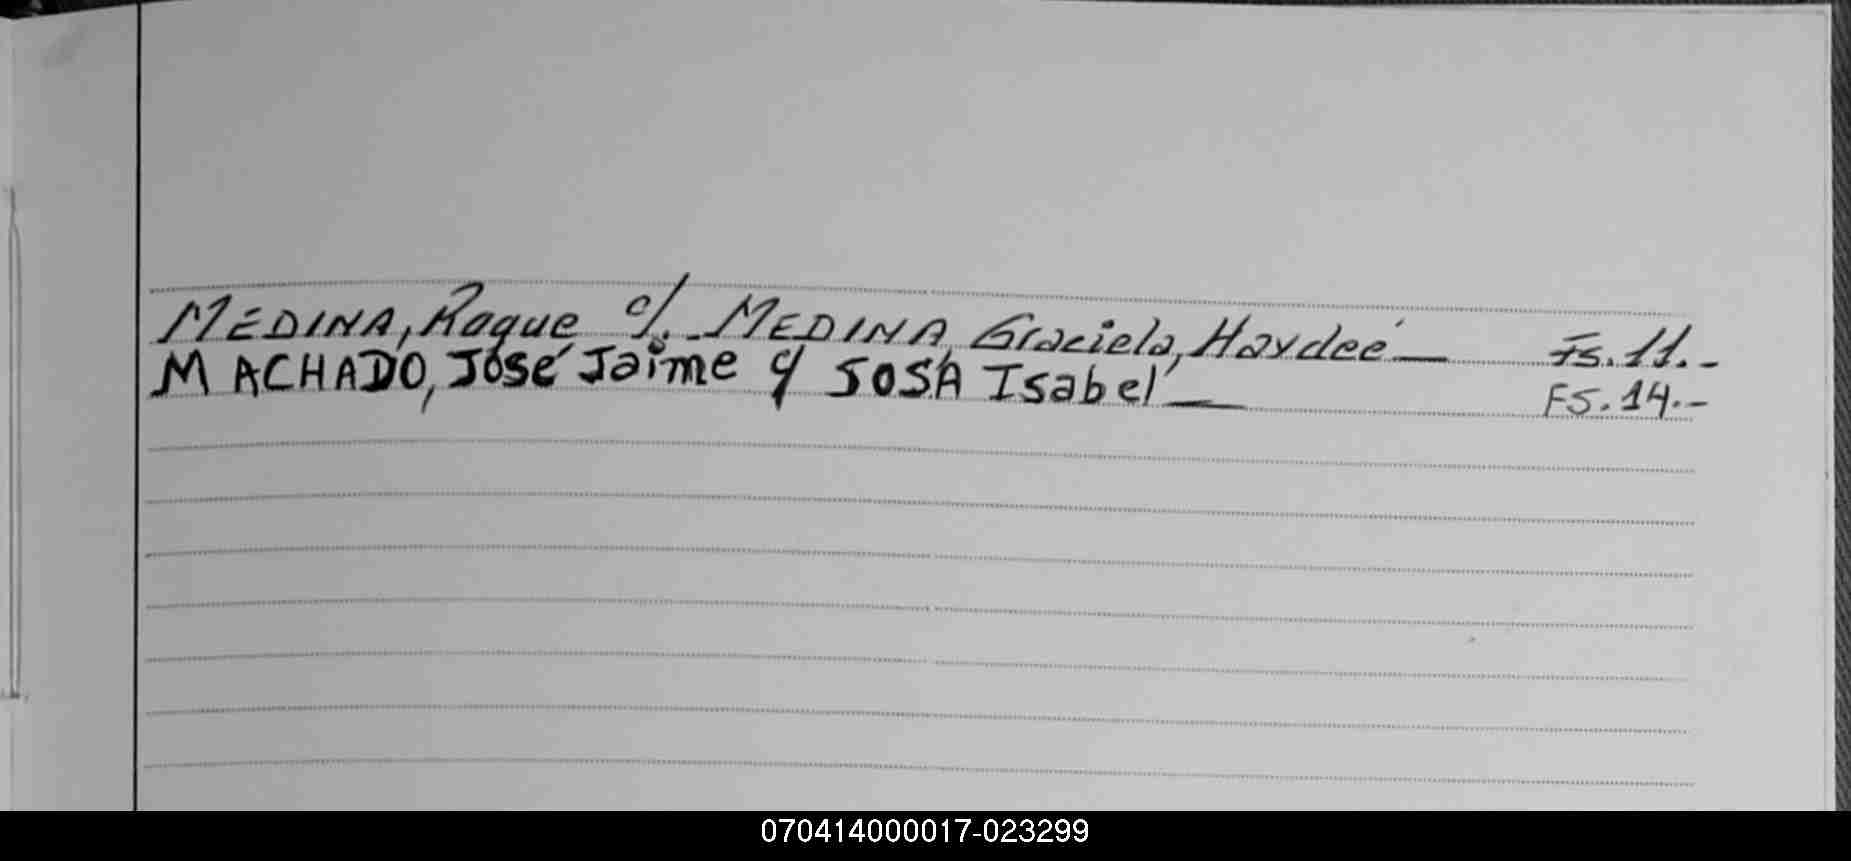 MEDINA, Roque c/. MEDINA, Graciela, Haydeé — Fs. 11.-
MACHADO, José Jaime c/ SOSA Isabel — FS. 14.-
070414000017-023299